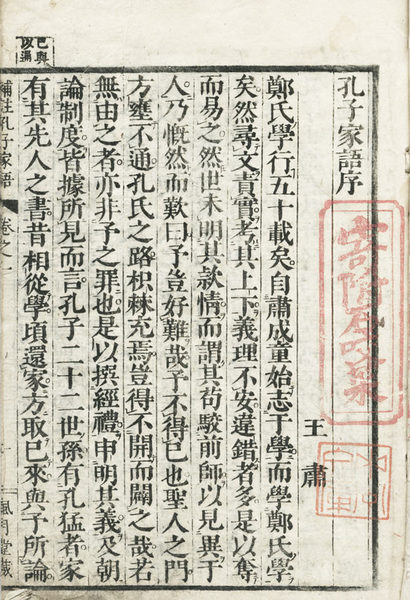 孔子家語序
王肅
鄭氏學行五十載矣自肅成童始志于學而學鄭氏學
矣然尋文責實考其上下義理不安違錯者多是以奪
而易之然世未明其款情而謂其苟駮前師以見異于
人乃慨然而歎曰予豈好難哉予不得已也聖人之門
方壅不通孔氏之路枳棘充焉豈得不開而闢之哉若
無由之者亦非予之罪也是以撰經禮申明其義及朝
論制度皆據所見而言孔子二十二世孫有孔猛者家
有其先人之書昔相從學頃還家方取已來與予所論
已與
補註孔子家語 卷之一